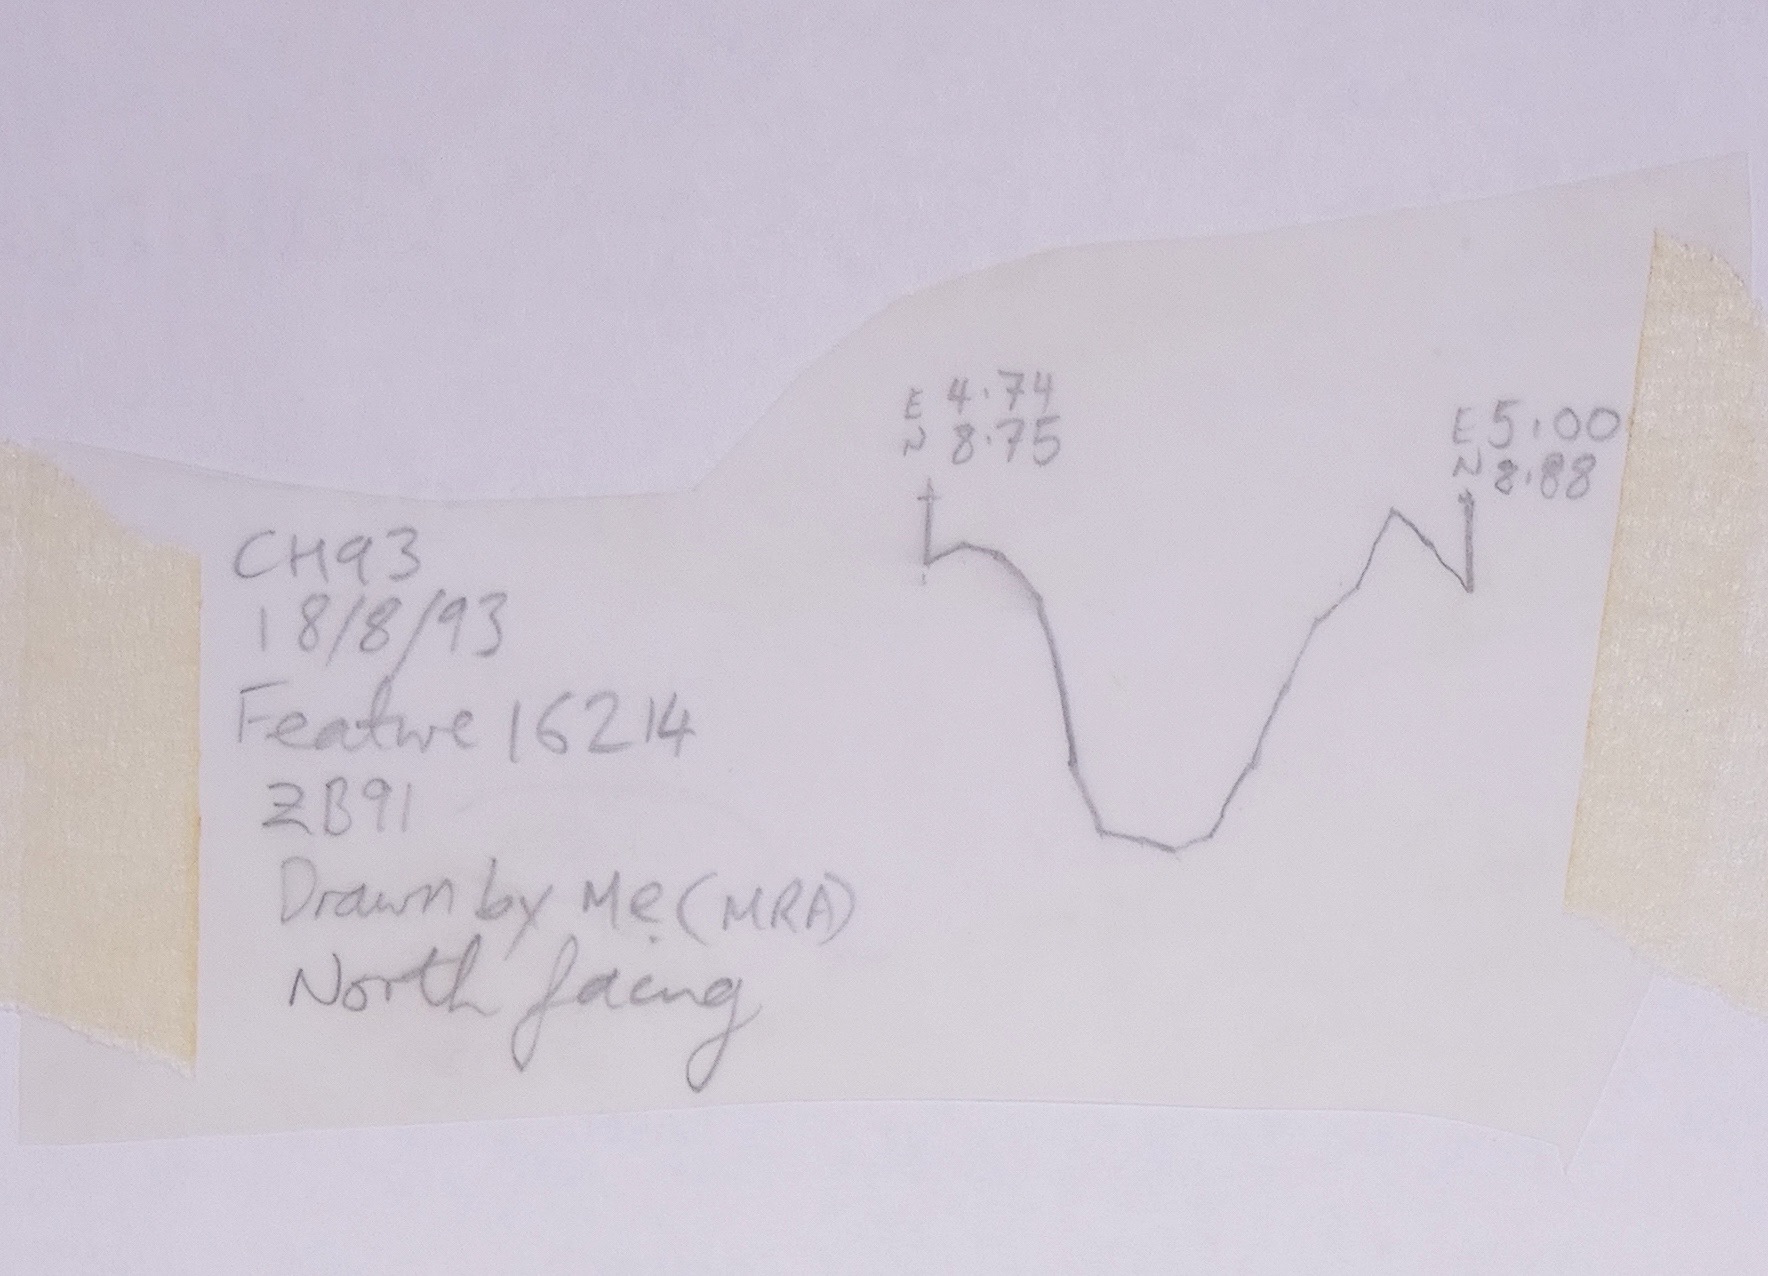 E 4.74
N 8.75
E 5.00
N 8.88
CH93
18/8/93
Feature 16214
ZB91
Drawn by Me (MRA)
North facing